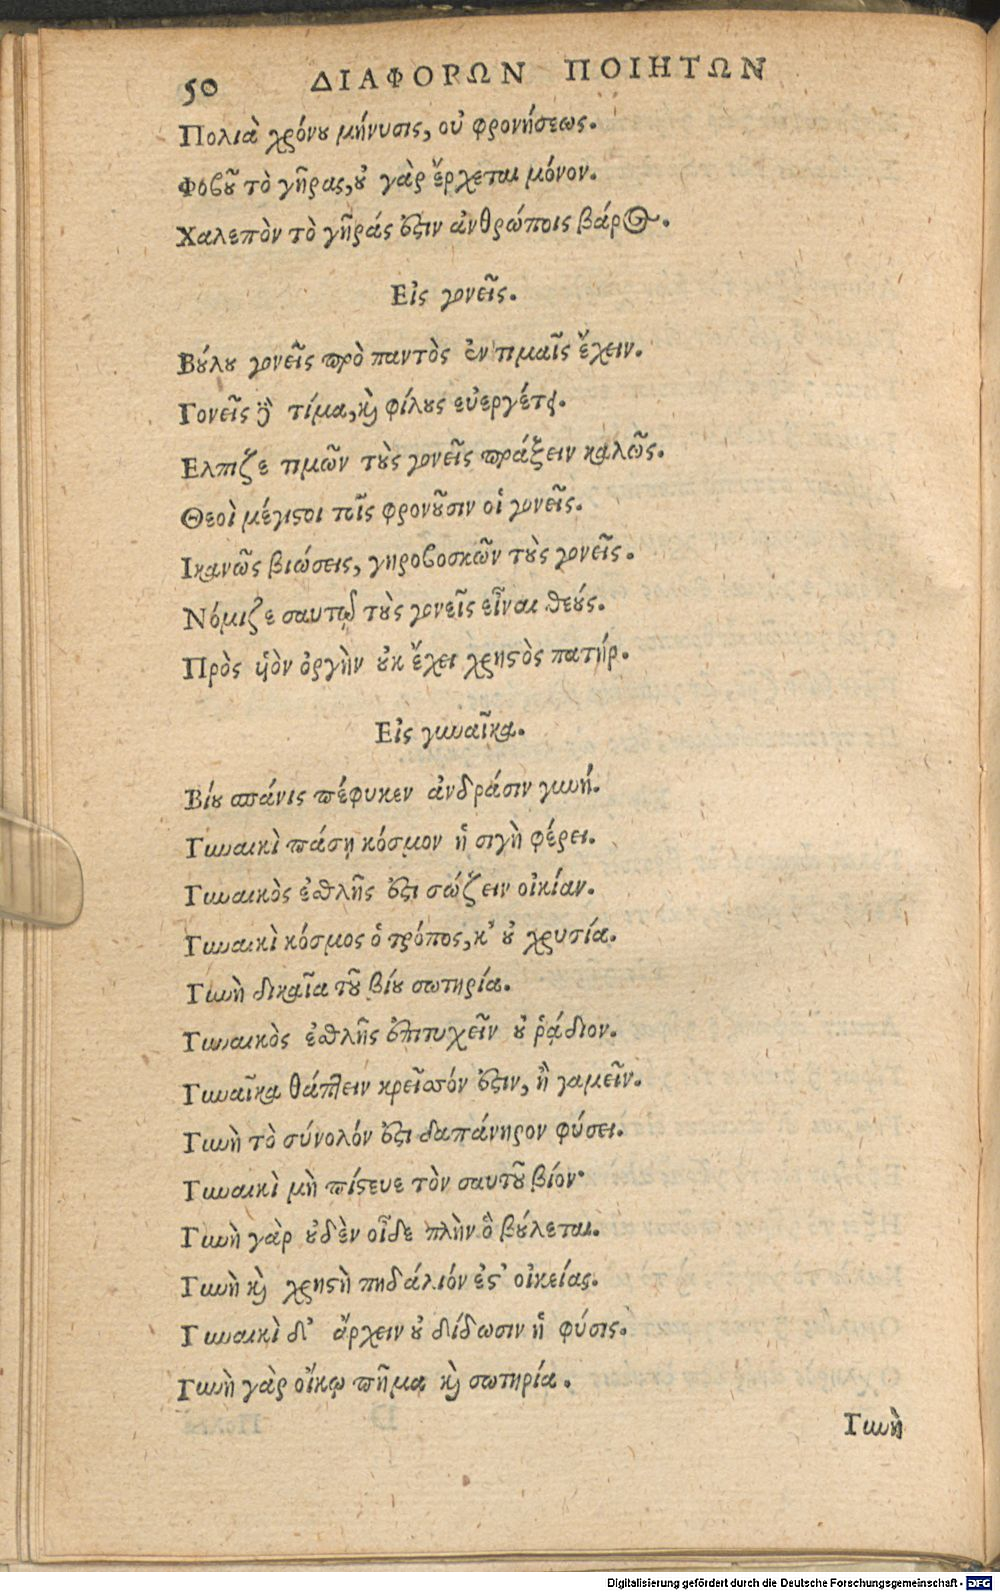 50 ΔΙΑΦΟΡΩΝ ΠΟΙΗΤΩΝ
Πολιὰ χρόνου μήνυσις, οὐ φρονήσεως.
Φοβοῦ τὸ γῆρας, οὐ γὰρ ἔρχεται μόνον.
Χαλεπὸν τὸ γῆράς ἐστιν ἀνθρώποις βάρος.
Εἰς γονεῖς.
Βούλου γονεῖς πρὸ παντὸς ἐν τιμαῖς ἔχειν.
Γονεῖς δὲ τίμα, καὶ φίλους εὐεργέτει.
Ελπιζε τιμῶν τοὺς γονεῖς πράξειν καλῶς.
Θεοὶ μέγιστοι τοῖς φρονοῦσιν οἱ γονεῖς.
Ικανῶς βιώσεις, γηροβοσκῶν τοὺς γονεῖς.
Νόμιζε σαυτῷ τοὺς γονεῖς εἶναι θεούς.
Πρὸς υἱὸν ὀργὴν οὐκ ἔχει χρηστὸς πατήρ.
Εἰς γυναῖκα.
Βίου σπάνις πέφυκεν ἀνδράσιν γυνή.
Γυναικὶ πάσῃ κόσμον ἡ σιγὴ φέρει.
Γυναικὸς ἐσθλῆς ἐστι σώζειν οἰκίαν.
Γυναικὶ κόσμος ὁ τρόπος, κ' οὐ χρυσία.
Γυνὴ δικαῖα τοῦ βίου σωτηρία.
Γυναικὸς ἐσθλῆς ἐπιτυχεῖν οὐ ῥᾴδιον.
Γυναῖκα θάπτειν κρεῖσσόν ἐστιν, ἢ γαμεῖν.
Γυνὴ τὸ σύνολόν ἐστι δαπάνηρον φύσει.
Γυναικὶ μὴ πίστευε τὸν σαυτοῦ βίον·
Γυνὴ γὰρ οὐδὲν οἶδε πλὴν ὃ βούλεται.
Γυνὴ καὶ χρηστὴ πηδάλιόν ἐστ' οἰκείας.
Γυναικὶ δ' ἄρχειν οὐ δίδωσιν ἡ φύσις.
Γυνὴ γὰρ οἴκῳ πῆμα καὶ σωτηρία.
Γυνὴ
Digitalisierung gefördert durch die Deutsche Forschungsgemeinschaft - DFG